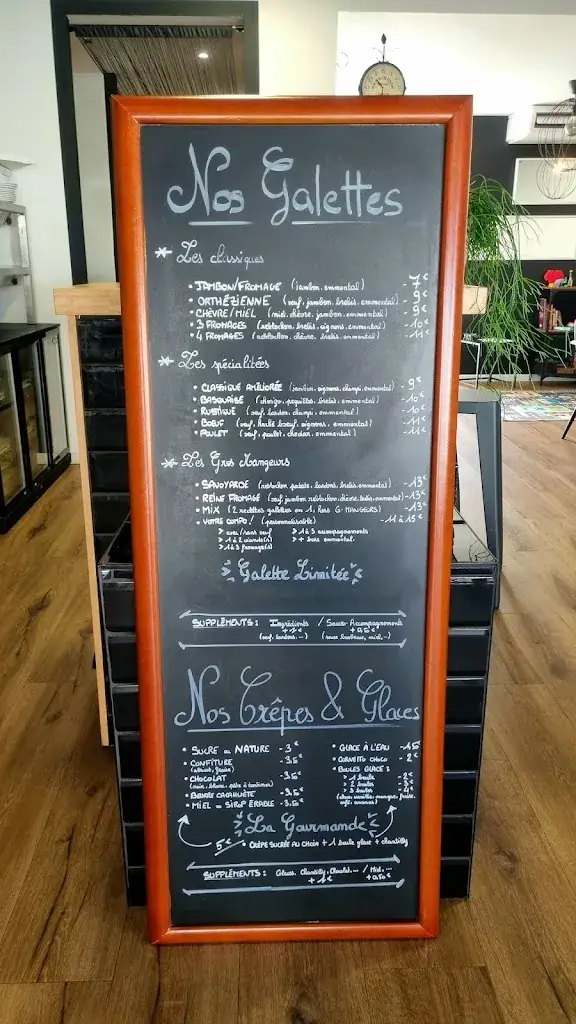 Nos Galettes
* Les classiques
• JAMBON/FROMAGE (jambon, emmental) - 7€
• ORTHÉZIENNE (oeuf, jambon, brebis, emmental) - 9€
• CHÈVRE/MIEL (miel, chèvre, jambon, emmental) - 9€
• 3 FROMAGES (reblochon, brebis, oignons, emmental) - 10€
• 4 FROMAGES (reblochon, chèvre, brebis, emmental) - 11€
* Les spécialitées
• CLASSIQUE AMÉLIORÉE (jambon, oignons, champi, emmental) - 9€
• BASQUAISE (chorizo, piquillos, brebis, emmental) - 10€
• RUSTIQUE (oeuf, lardon, champi, emmental) - 10€
• BOEUF (oeuf, haché boeuf, oignons, emmental) - 11€
• POULET (oeuf, poulet, chedar, emmental) - 11€
* Les Gros Mangeurs
• SAVOYARDE (reblochon, patate, lardons, brebis, emmental) - 13€
• REINE FROMAGE (oeuf, jambon, reblochon, chèvre, brebis, emmental) - 13€
• MIX (2 recettes galettes en 1, Hors G. MANGEURS) - 13€
• VOTRE COMPO! (personnalisable) - 11 à 15€
> avec/sans oeuf > 1 à 3 accompagnements
> 1 à 2 viande(s) > + base emmental
> 1 à 3 fromage(s)
Galette Limitée
SUPPLÉMENTS : Ingrédients / Sauces-Accompagnements
+ 1€ + 0,5€
(oeuf, lardons, ...) (sauce barbecue, miel, ...)
Nos Crêpes & Glaces
• SUCRE ou NATURE - 3€
• CONFITURE - 3,5€
(abricot, fraise)
• CHOCOLAT - 3,5€
(noir, blanc, pâte à tartiner)
• BEURRE CACAHUÈTE - 3,5€
• MIEL ou SIROP ÉRABLE - 3,5€
• GLACE À L'EAU - 1,5
• CORNETTO CHOCO - 2€
• BOULES GLACE :
> 1 boule - 2€
> 2 boules - 3€
> 3 boules - 4€
(choco, vanille, mangue, fraise, café, ananas)
La Gourmande
5€ • CRÊPE SUCRÉE AU CHOIX + 1 boule glace + chantilly
SUPPLÉMENTS : Glace, Chantilly, Chocolat, ... / Miel, ...
+ 1€ + 0,50€